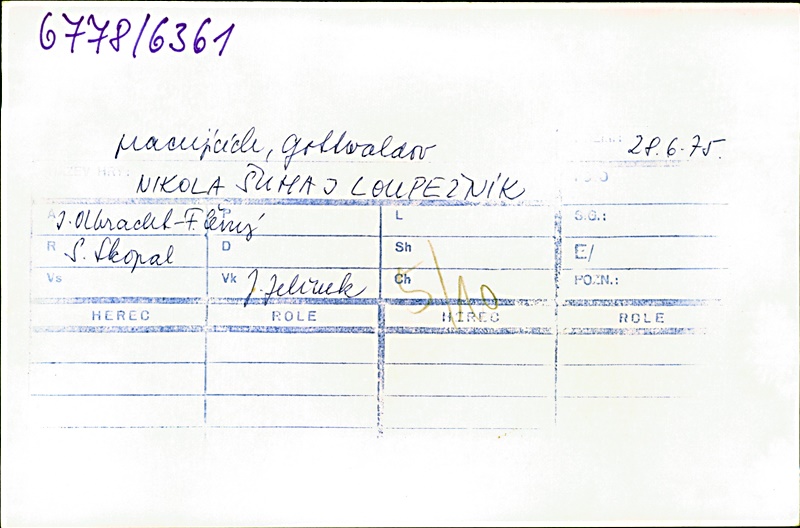 6778/6361
pracujících, Gottwaldov 28.6.75.
NIKOLA ŠUHAJ LOUPEŽNÍK
A I. Olbracht - F. P L S.G.:
R S. Skopal D Sh E/
Vs Vk J. Jelínek Ch 5/10 POZN.:
HEREC ROLE HEREC ROLE